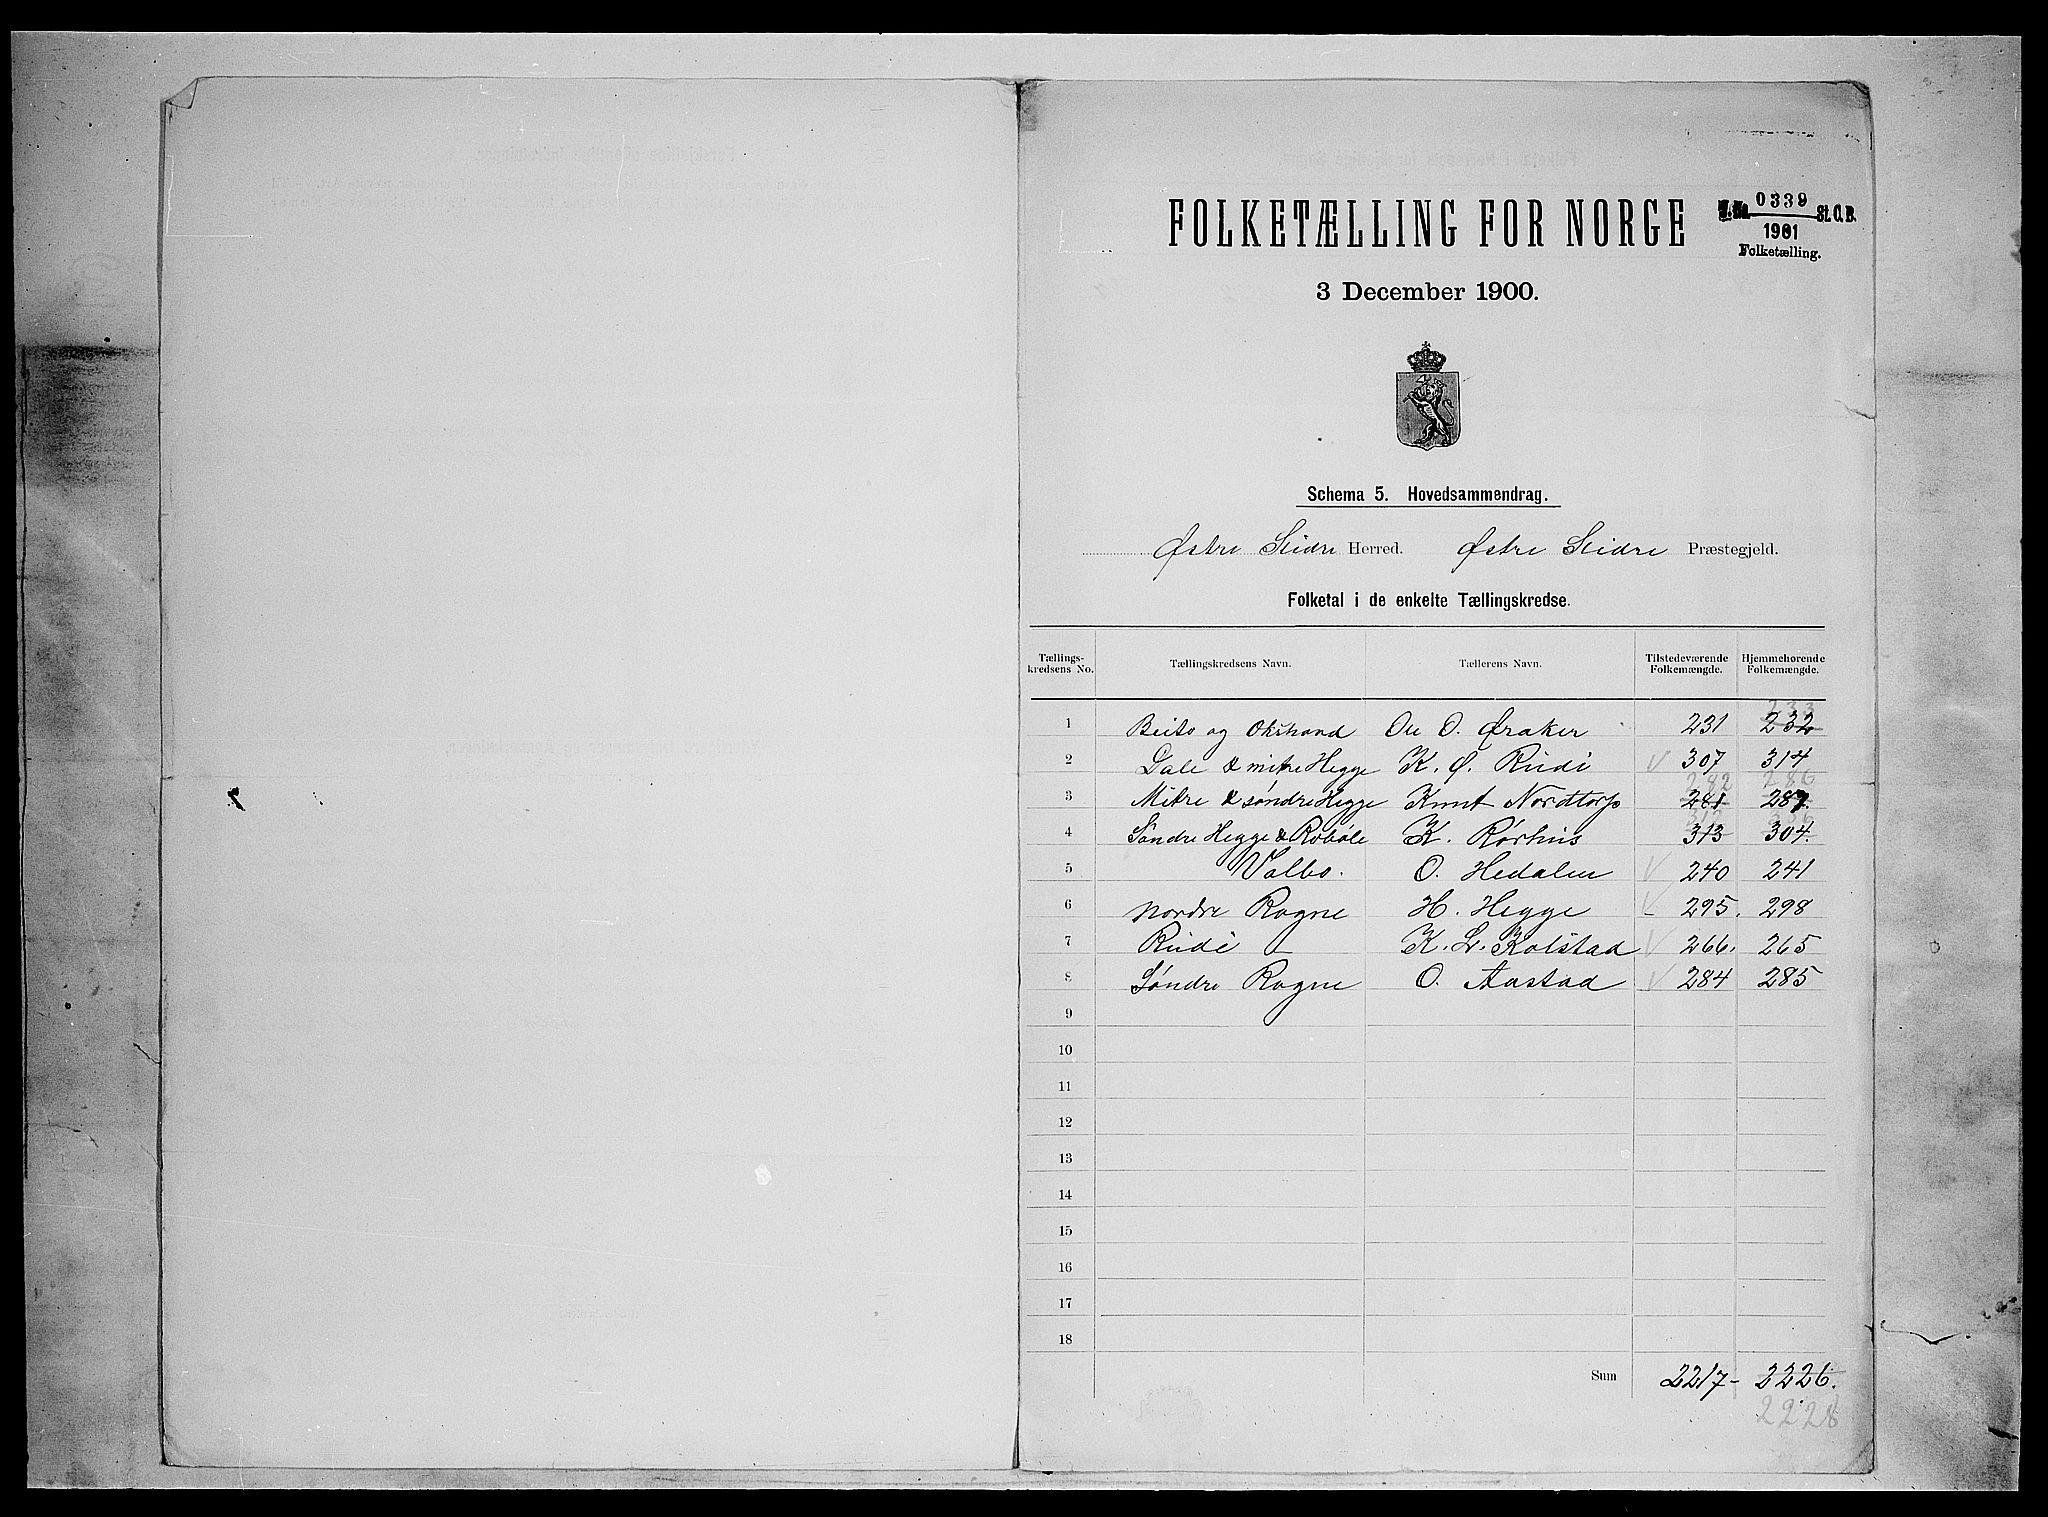 FOLKETÆLLING FOR NORGE
J. No. 0339 St. C. B.
1901
Folketælling.
3 December 1900.
Schema 5. Hovedsammendrag.
Østre Slidre Herred. Østre Slidre Præstegjeld.
Folketal i de enkelte Tællingskredse.
Tællings-kredsens No. Tællingskredsens Navn. Tællerens Navn. Tilstedeværende Folkemængde. Hjemmehørende Folkemængde.
233
1 Beito og Okshovd Ole O. Øraker 231 232
2 Dale & mitre Hegge K. Ø. Rudi 307 314
282 286
3 Mitre & søndre Hegge Knut Nordtorp 281 287
312 306
4 Søndre Hegge & Robøle K. Rørhus 313 304.
5 Volbo. O. Hedalen 240 241
6 Nordre Rogne H. Hegge 295. 298
7 Rudi – K. L. Kolstad 266. 265
8 Søndre Rogne O. Aastad 284 285
9
10
11
12
13
14
15
16
17
18
Sum 2217– 2226.
2228